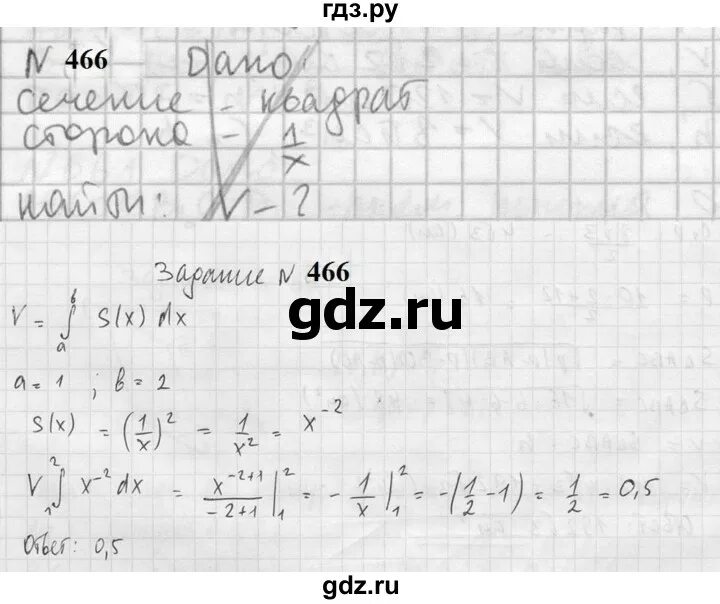 гдз.ру
N 466 Дано:
сечение - квадрат
сторона - 1/x
найти: V - ?
Задание N 466
gdz.ru
V = ∫ₐᵇ S(x) dx
a = 1 ; b = 2
S(x) = (1/x)² = 1/x² = x⁻²
V ₁∫² x⁻² dx = x⁻²⁺¹/-2+1 |₁² = - 1/x |₁² = -(1/2 - 1) = 1/2 = 0,5
Ответ: 0,5
gdz.ru